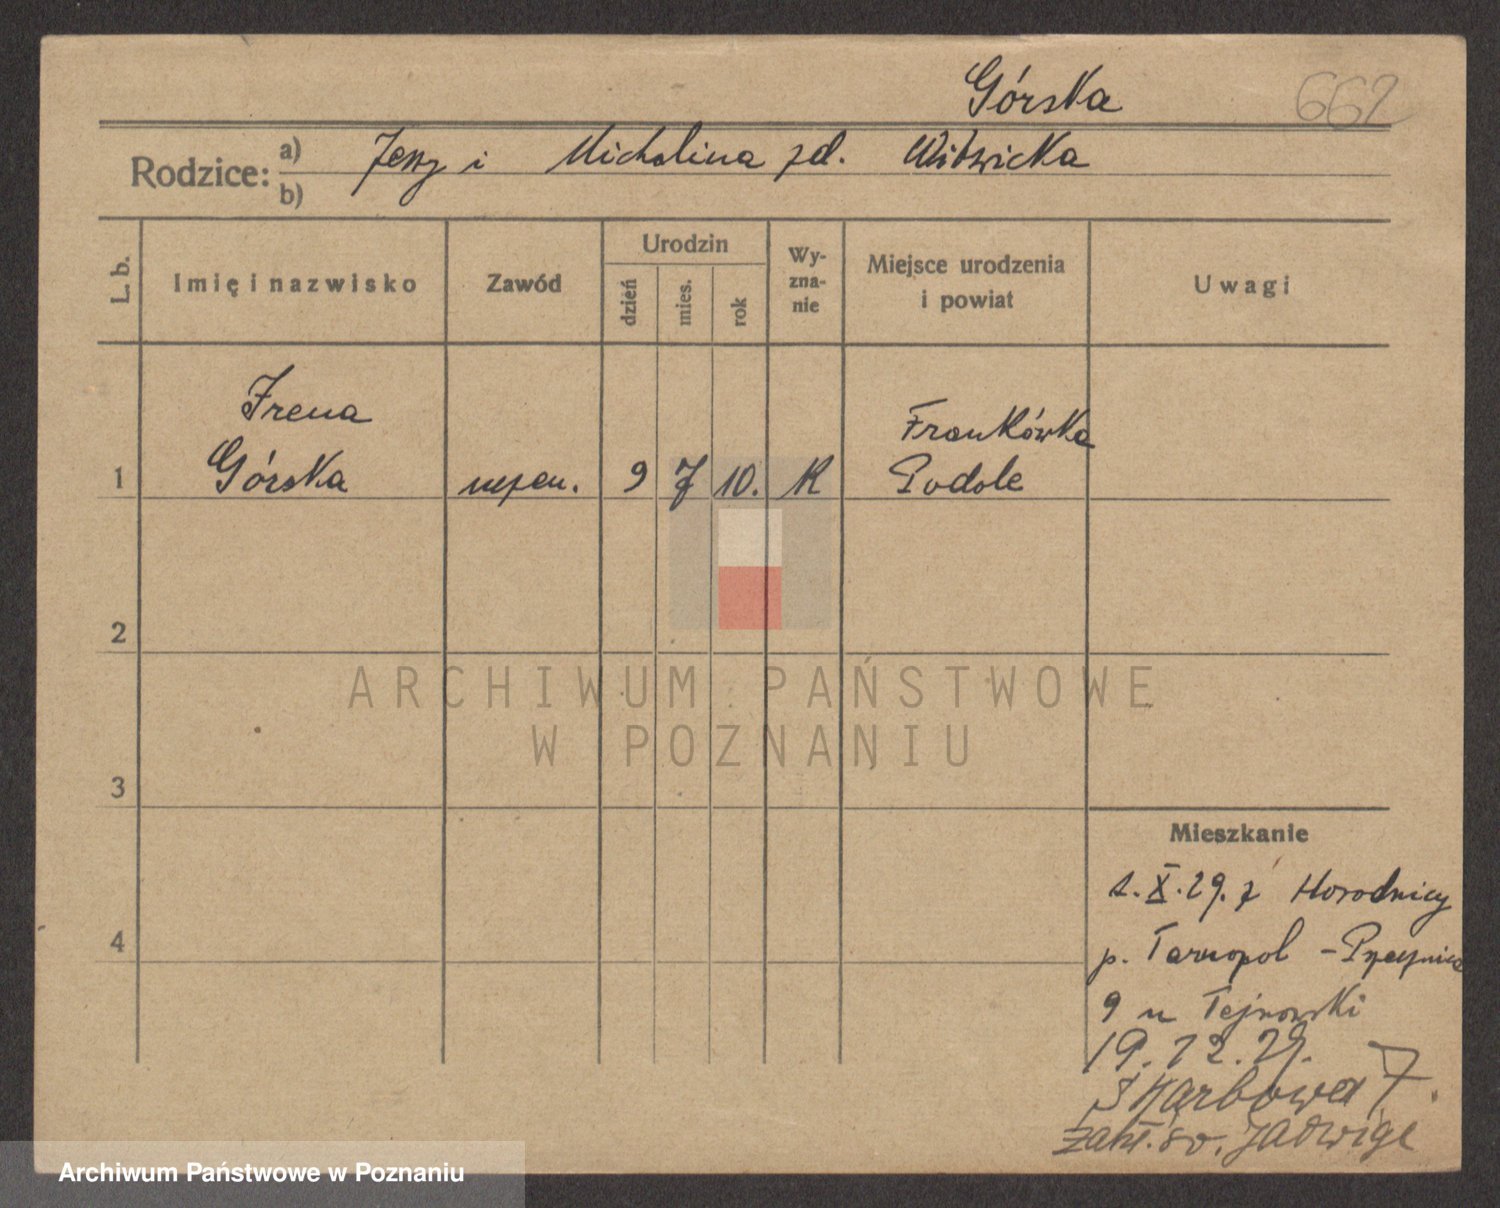 Górska 662
Rodzice: a) Jerzy i Michalina zd. Witwicka
b)
L. b. Imię i nazwisko Zawód Urodzin dzień mies. rok Wyznanie Miejsce urodzenia i powiat Uwagi
Irena Frankówka
1 Górska 9 7 10. R Podole
2
ARCHIWUM PAŃSTWOWE
W POZNANIU
3
Mieszkanie
1.X.29. z Horodnicy
4
p. Tarnopol –
9 u
19.12.29.
Skarbowa 7.
Zakł. św. Jadwigi
Archiwum Państwowe w Poznaniu